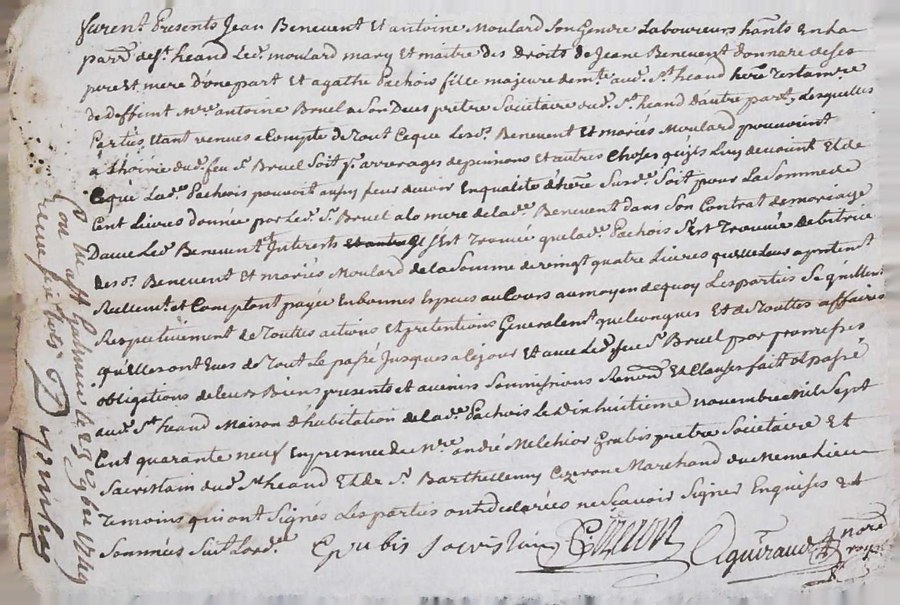 furent Presents Jean Benevent Et antoine Moulard Son Gendre Laboureurs hants En la
parr.e de S.t heand Led. moulard mary et maitre des Droits de Jeane Benevent donnaré de ses
pere et mere D'one part Et agathe Pachois fille majeure dem.te aud. S.t heand here Testam.re
de deffunt M.re antoine Bruel a Son Deces prêtre Societaire du d. S.t heand d'autre part, Lesquelles
Parties Etant venues a Compte de Tout Ceque Lesd. Benevent Et mariés Moulard pouvoient
a L'hoirie dud. feu S.r Bruel Soit p.r arrerages de pensions et autres Choses qu'ils Luy devoient Et de
Ceque Lad.e Pachois pouvoit aussy leur devoir En qualité d'here Susd.e Soit pour La Somme de
Cent Livres donnée par Led. S.r Bruel a la mere de lad.e Benevent dans Son Contrat de mariage
Benevent Interets S'est Trouvée que lad.e Pachois S'est Trouvée debitrice
desd. Benevent et mariés Moulard de la Somme de vingt quatre Livres quelle Leur a presentem.t
Reellem.t et Comptant payée En bonnes Especes au Cours au moyen de quoy Les parties Se quittent
Respectivement de Touttes actions Et pretentions Generalem.t quelconques Et de Touttes affaires
qu'elles ont Eues de Tout Le passé Jusques a Ce jour Et avec Led. feu S.r Bruel par promesses
obligations de leurs Biens presents et avenirs Soummissions Renon.ons Et Clauses fait et passé
aud. S.t heand Maison d'habitation de lad.e Pachois Le dixhuitieme novembre Mil Sept
Cent quarante neuf En presence de M.re andré Melchior Grubis prêtre Societaire Et
Sacristain dud. S.t heand Et de S.r Barthellemy Cizeron Marchand du Meme Lieu
Temoins qui ont Signés Les parties ont declarées ne Scavoir Signer Enquises et
Sommées Suit Lord.e
Grubis Sacristain Cizeron Aguiraud no.re royal
le 29 9bre 1749